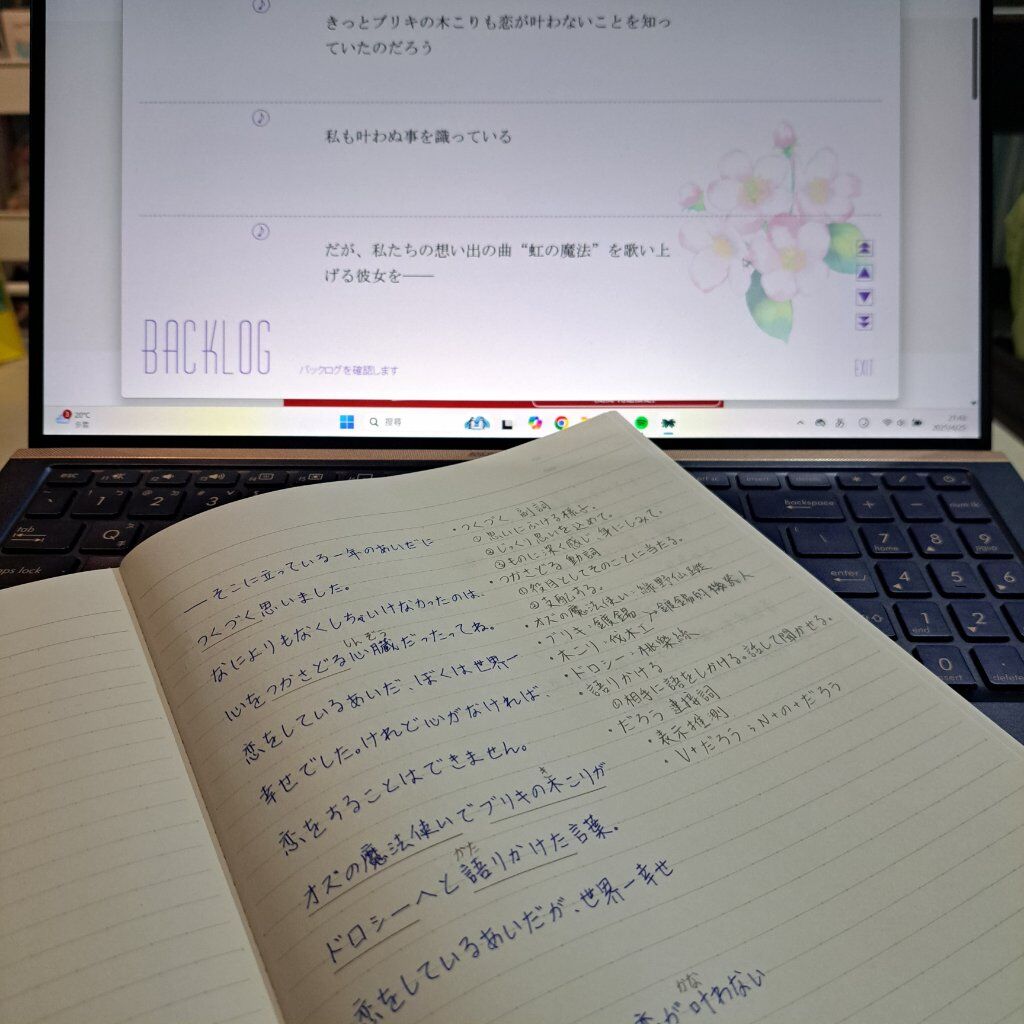 きっとブリキの木こりも恋が叶わないことを知っ
ていたのだろう
私も叶わぬ事を識っている
だが、私たちの想い出の曲“虹の魔法”を歌い上
げる彼女を――
BACKLOG
バックログを確認します
EXIT
3
20°C
多雲
搜尋
あ
2025/4/25
esc
insert
backspace
num lk
tab
Q
enter
caps lock
1
2
3
7
home
8
9
pgup
4
5
6
1
end
2
0
insert
delete
――そこに立っている一年のあいだに
つくづく思いました。
なによりもなくしちゃいけなかったのは、
しんぞう
心をつかさどる心臓だったってね。
恋をしているあいだ、ぼくは世界一
幸せでした。けれど心がなければ、
恋をすることはできません。
き
オズの魔法使いでブリキの木こりが
かた
ドロシーへと語りかけた言葉。
恋をしているあいだが、世界一幸せ
かな
恋が叶わない
・つくづく 副詞
①思いにふける様子。
②じっくり思いを込めて。
③ものに深く感じ、身にしみて。
・つかさどる 動詞
①役目としてそのことに当たる。
②支配する。
・オズの魔法使い：綠野仙蹤
・ブリキ：鍍錫→鍍錫的機器人
・木こり：伐木工
・ドロシー：桃樂絲
・語りかける
①相手に話をしかける。話して聞かせる。
・だろう 連接詞
・表示推測
・V+だろう；N+の+だろう